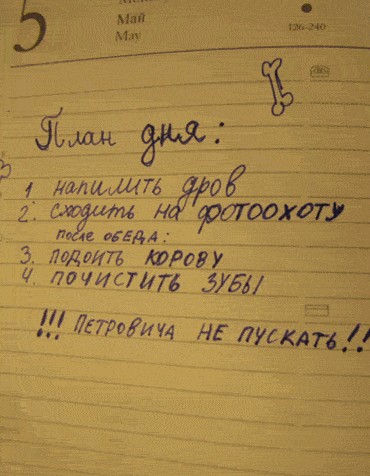 5
Май
May
126-240
План дня:
1. напилить дров
2. сходить на фотоохоту
после обеда:
3. подоить корову
4. почистить зубы
!!! Петровича не пускать!!